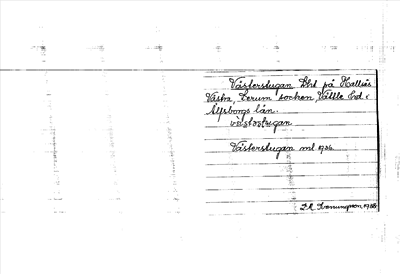 Västerstugan lht på Hallsås
Västra, Lerum socken, Vättle hd i
Älfsborgs län.
västərstugan
Västerstugan ml 1926
1926